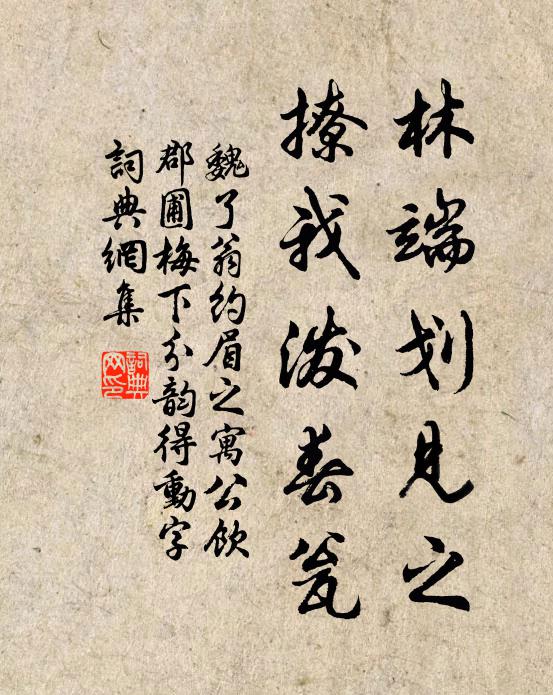 林端划见之
撩我泼春瓮
魏了翁約眉之寓公飲
郡圃梅下分韵得動字
詞典網集
詞典網印